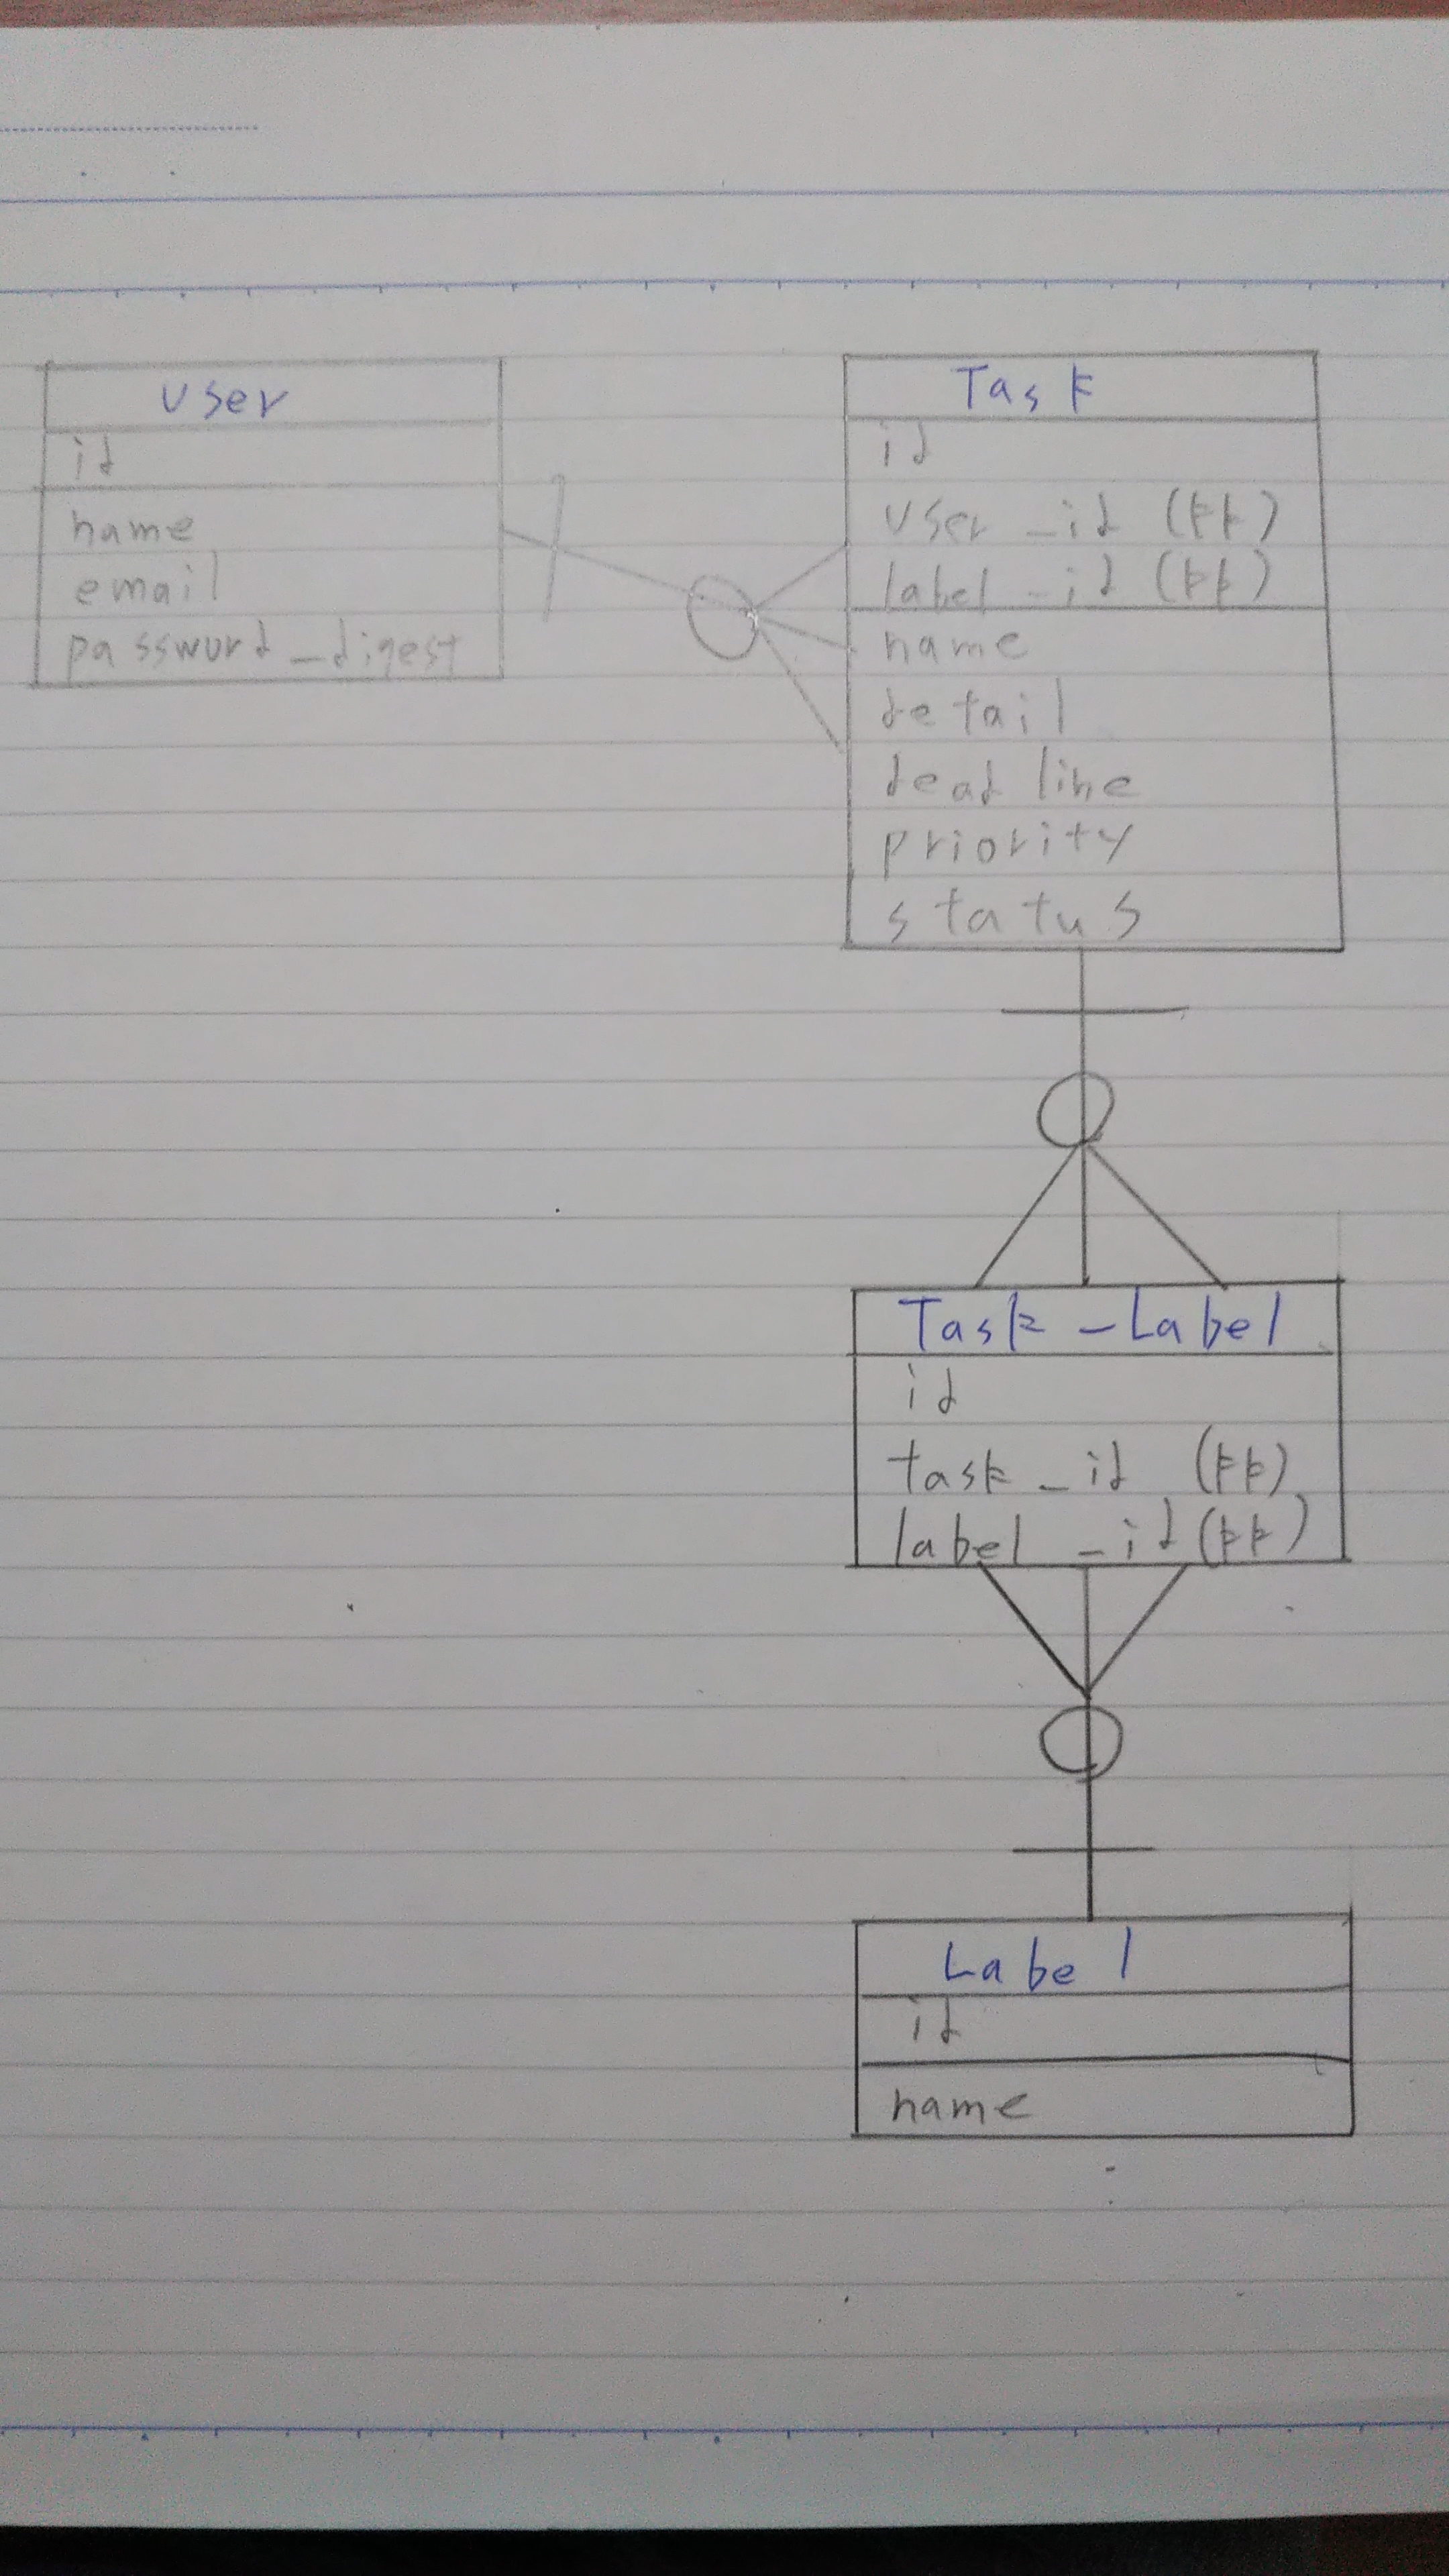 User
id
name
email
password_digest
Task
id
user_id (FK)
label_id (FK)
name
detail
dead line
priority
status
Task_Label
id
task_id (FK)
label_id (FK)
Label
id
name